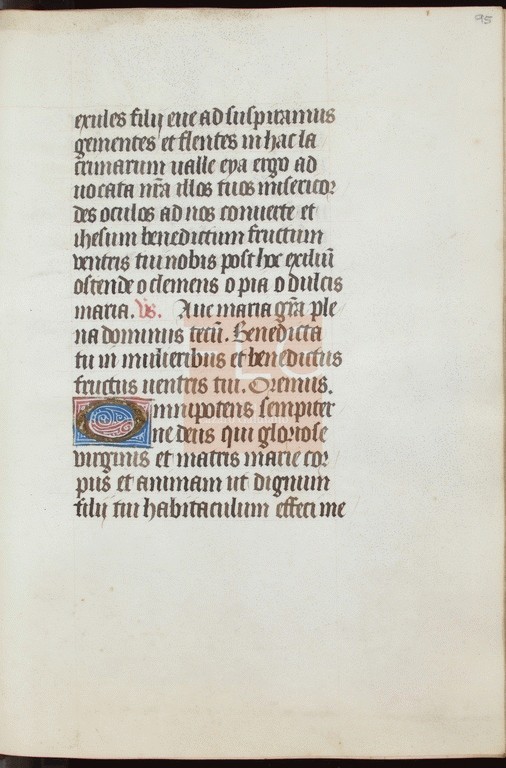 95
exules filij eue ad suspiramus
gementes et flentes in hac la
crimarum ualle eya ergo ad
uocata nr̄a illos tuos misericor
des oculos ad nos conuerte et
ihesum benedictum fructum
ventris tui nobis post hoc exiliū
ostende o clemens o pia o dulcis
maria. vs. Aue maria gr̄a ple
na dominus tecū. Benedicta
tu in mulieribus et benedictus
fructus uentris tui. Oremus.
Omnipotens sempiter
ne deus qui gloriose
virginis et matris marie cor
pus et animam ut dignum
filij tui habitaculum effeci me